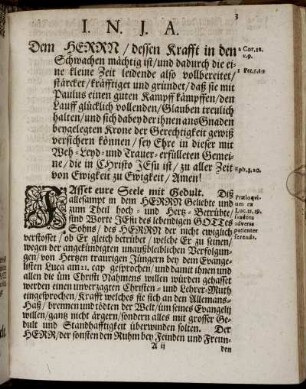 3
I. N. J. A.
Dem HERRN / dessen Krafft in den
Schwachen mächtig ist / und dadurch die ei-
ne kleine Zeit leidende also vollbereitet /
stärcket / kräfftiget und gründet / daß sie mit
Paulus einen guten Kampff kämpffen / den
Lauff glücklich vollenden / Glauben treulich
halten / und sich dabey der ihnen aus Gnaden
beygelegten Krone der Gerechtigkeit gewiß
versichern können / sey Ehre in dieser mit
Weh-Leyd- und Trauer-erfülleten Gemei-
ne / die in Christo JEsu ist / zu aller Zeit
von Ewigkeit zu Ewigkeit / Amen!
FAsset eure Seele mit Gedult. Diß
allesampt in dem HERRN Geliebte und
zum Theil hoch- und Hertz-Betrübte /
sind Worte JEsu des lebendigen GOTTes
Sohns / des HERRN der nicht ewiglich
verstosset / ob Er gleich betrübet / welche Er zu seinen /
wegen der angekündigten unausbleiblichen Verfolgun-
gen / von Hertzen traurigen Jüngern bey dem Evange-
listen Luca am 21. cap gesprochen / und damit ihnen und
allen die üm Christi Nahmens willen würden gehasset
werden einen unverzagten Christen- und Lehrer-Muth
eingesprochen / Krafft welches sie sich an den Allemans-
Haß / brennen und tödten der Welt / üm seines Evangelij
willen / gantz nicht ärgern / sondern alles mit grosser Ge-
dult und Standhafftigkeit überwinden solten. Der
HERR / der sonsten den Ruhm bey Feinden und Freun-
A ij
den
2 Cor. 12.
v. 9.
Eph. 3, 20.
patienter
ferendis.